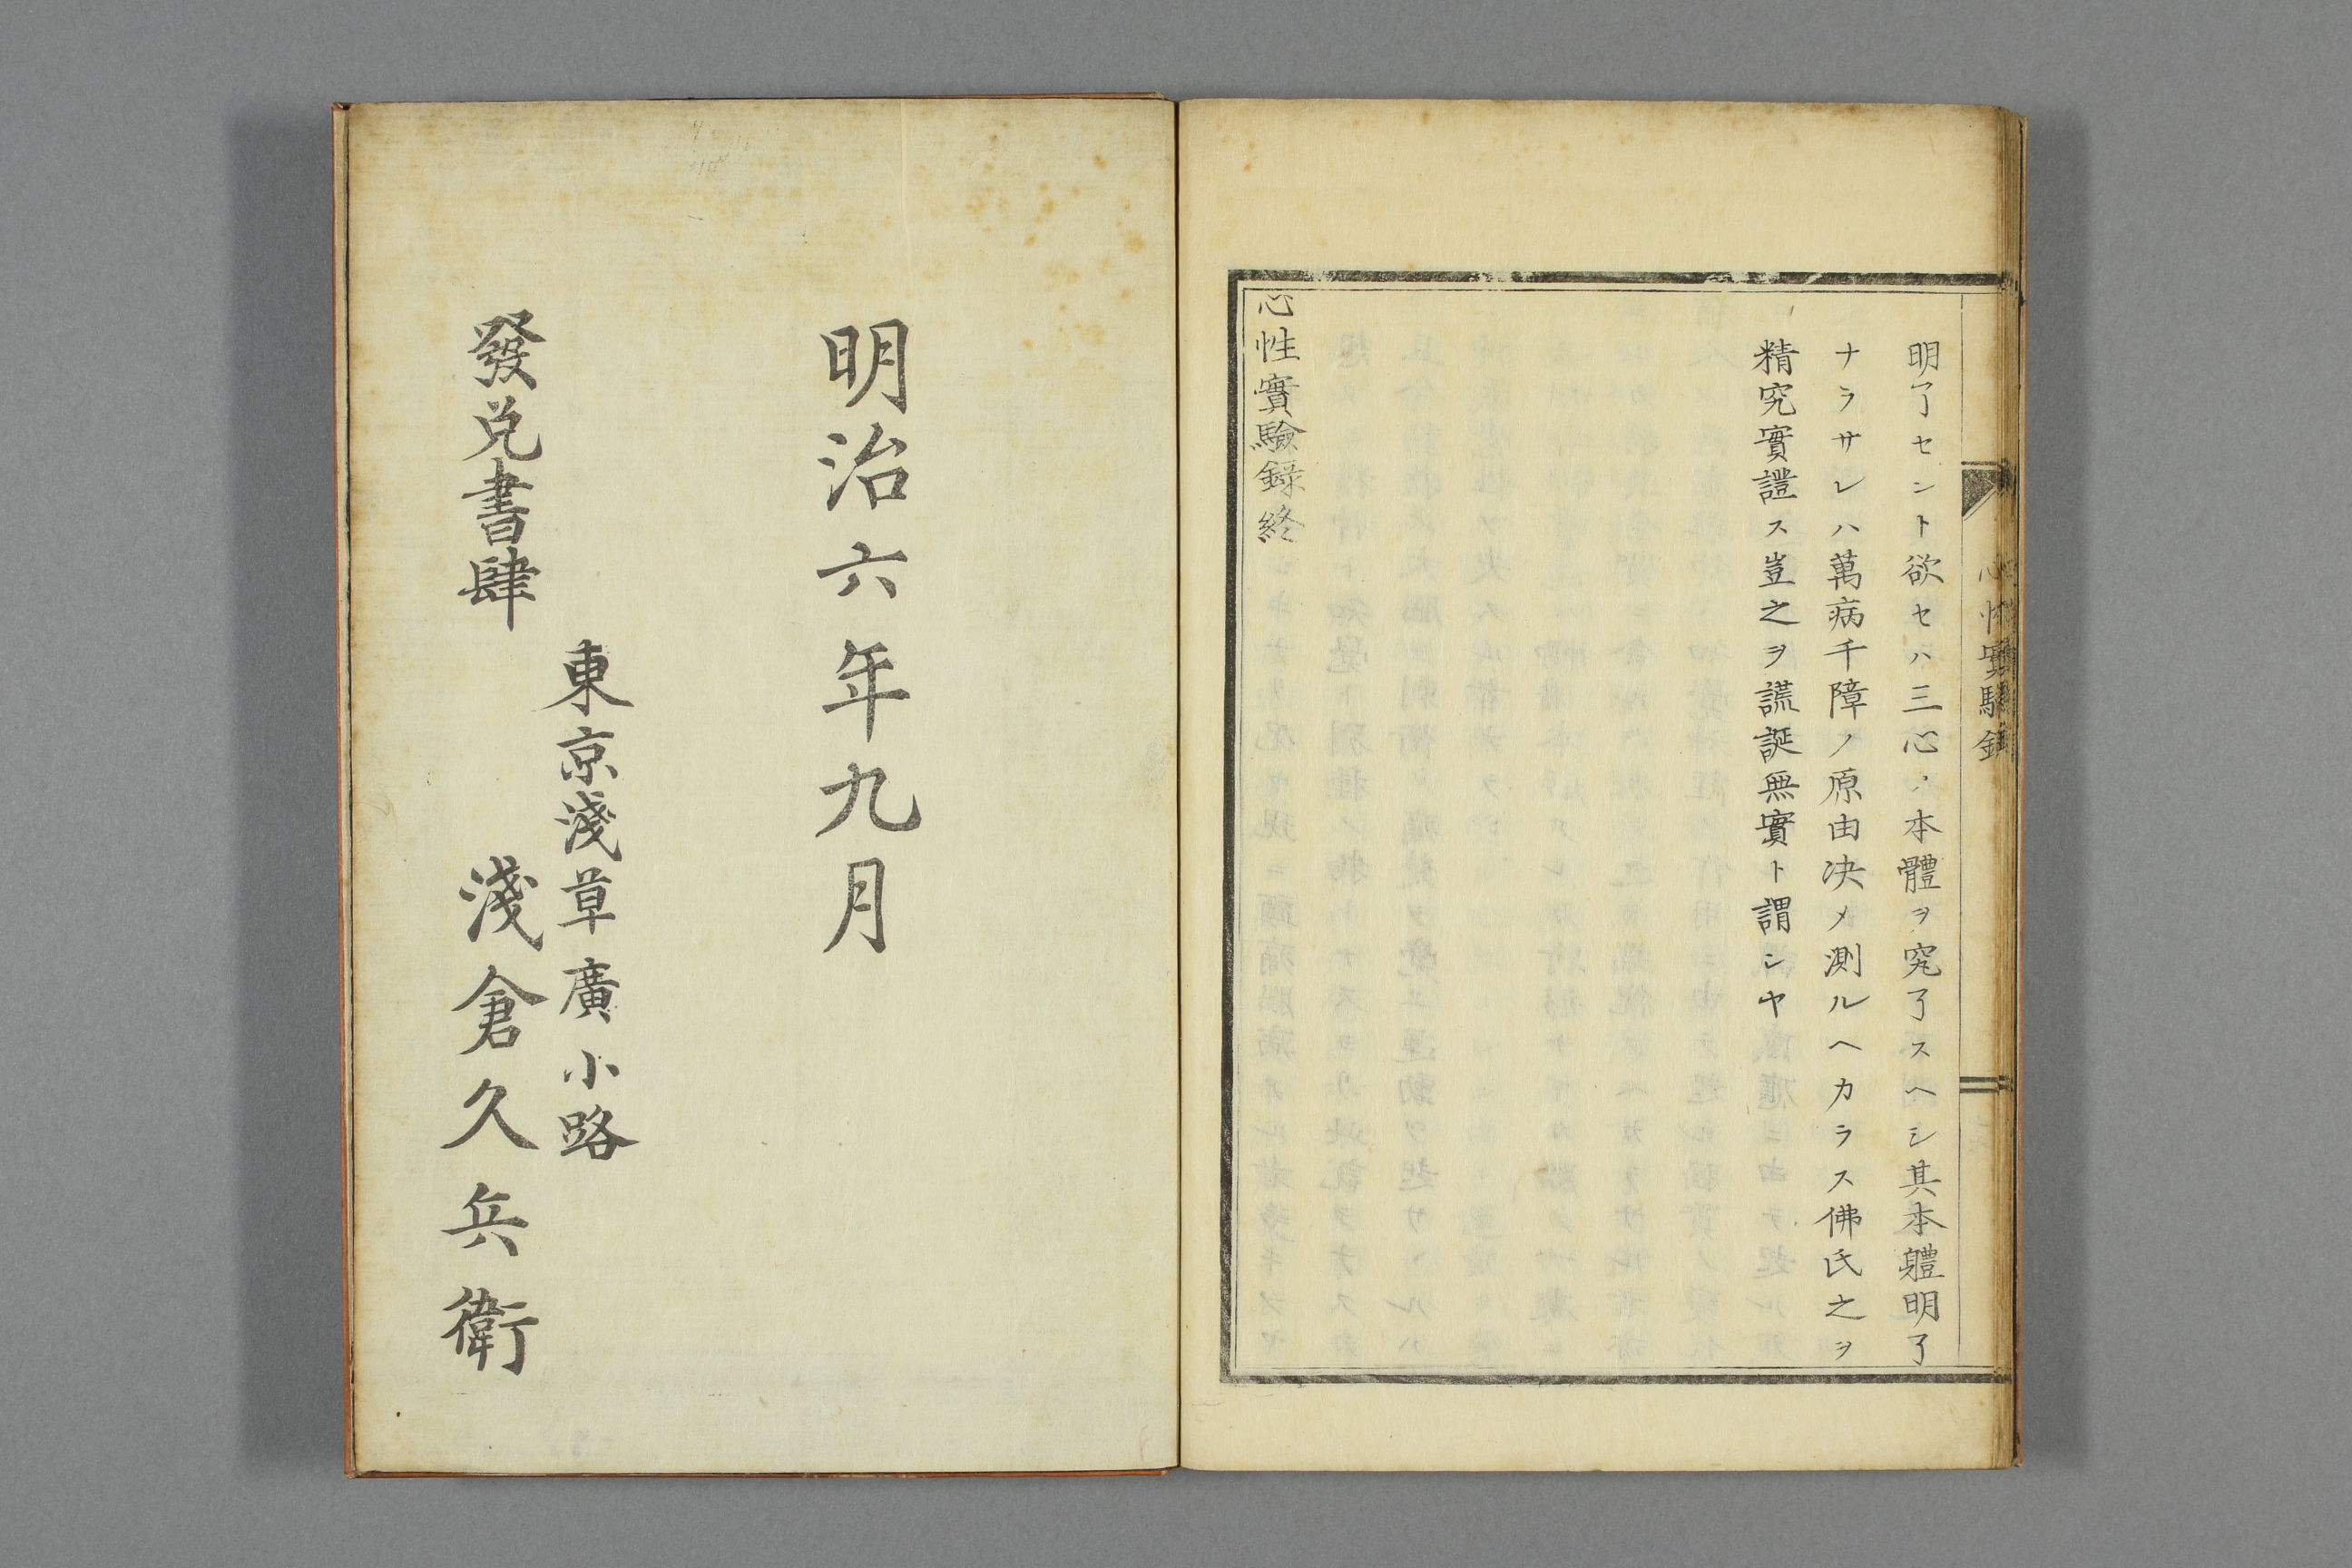 心性實驗錄
明了セント欲セハ三心ノ本體ヲ究了スヘシ其本軆明了
ナラサレハ萬病千障ノ原由决メ測ルヘカラス佛氏之ヲ
精究實證ス豈之ヲ謊誕無實ト謂ンヤ
心性實驗錄終
明治六年九月
東京淺草廣小路
發兌書肆
淺倉久兵衛